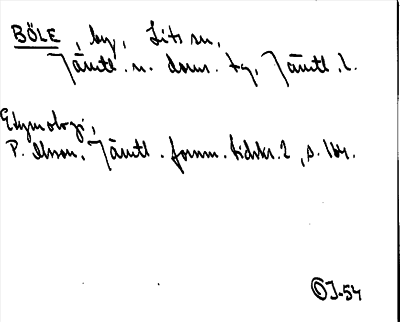 BÖLE, by, Lits sn,
Jämtl. n. doms. tg, Jämtl. l.
Etymologi,
P. Olsson, Jämtl. fornm. tidskr. 2, s. 164.
OJ-54